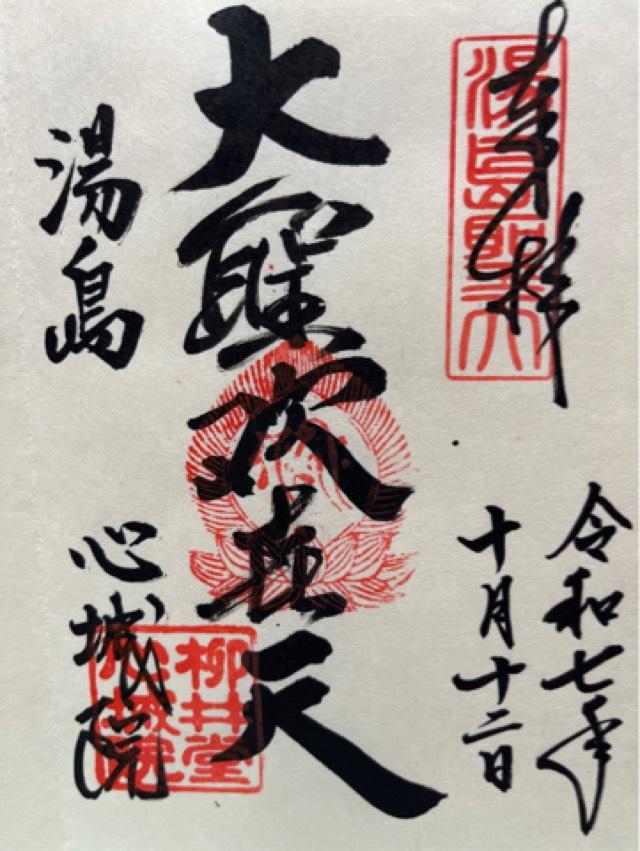 奉拝
湯島聖天
令和七年
十月十二日
大聖歓喜天
湯島
心城院
柳井堂
心城院